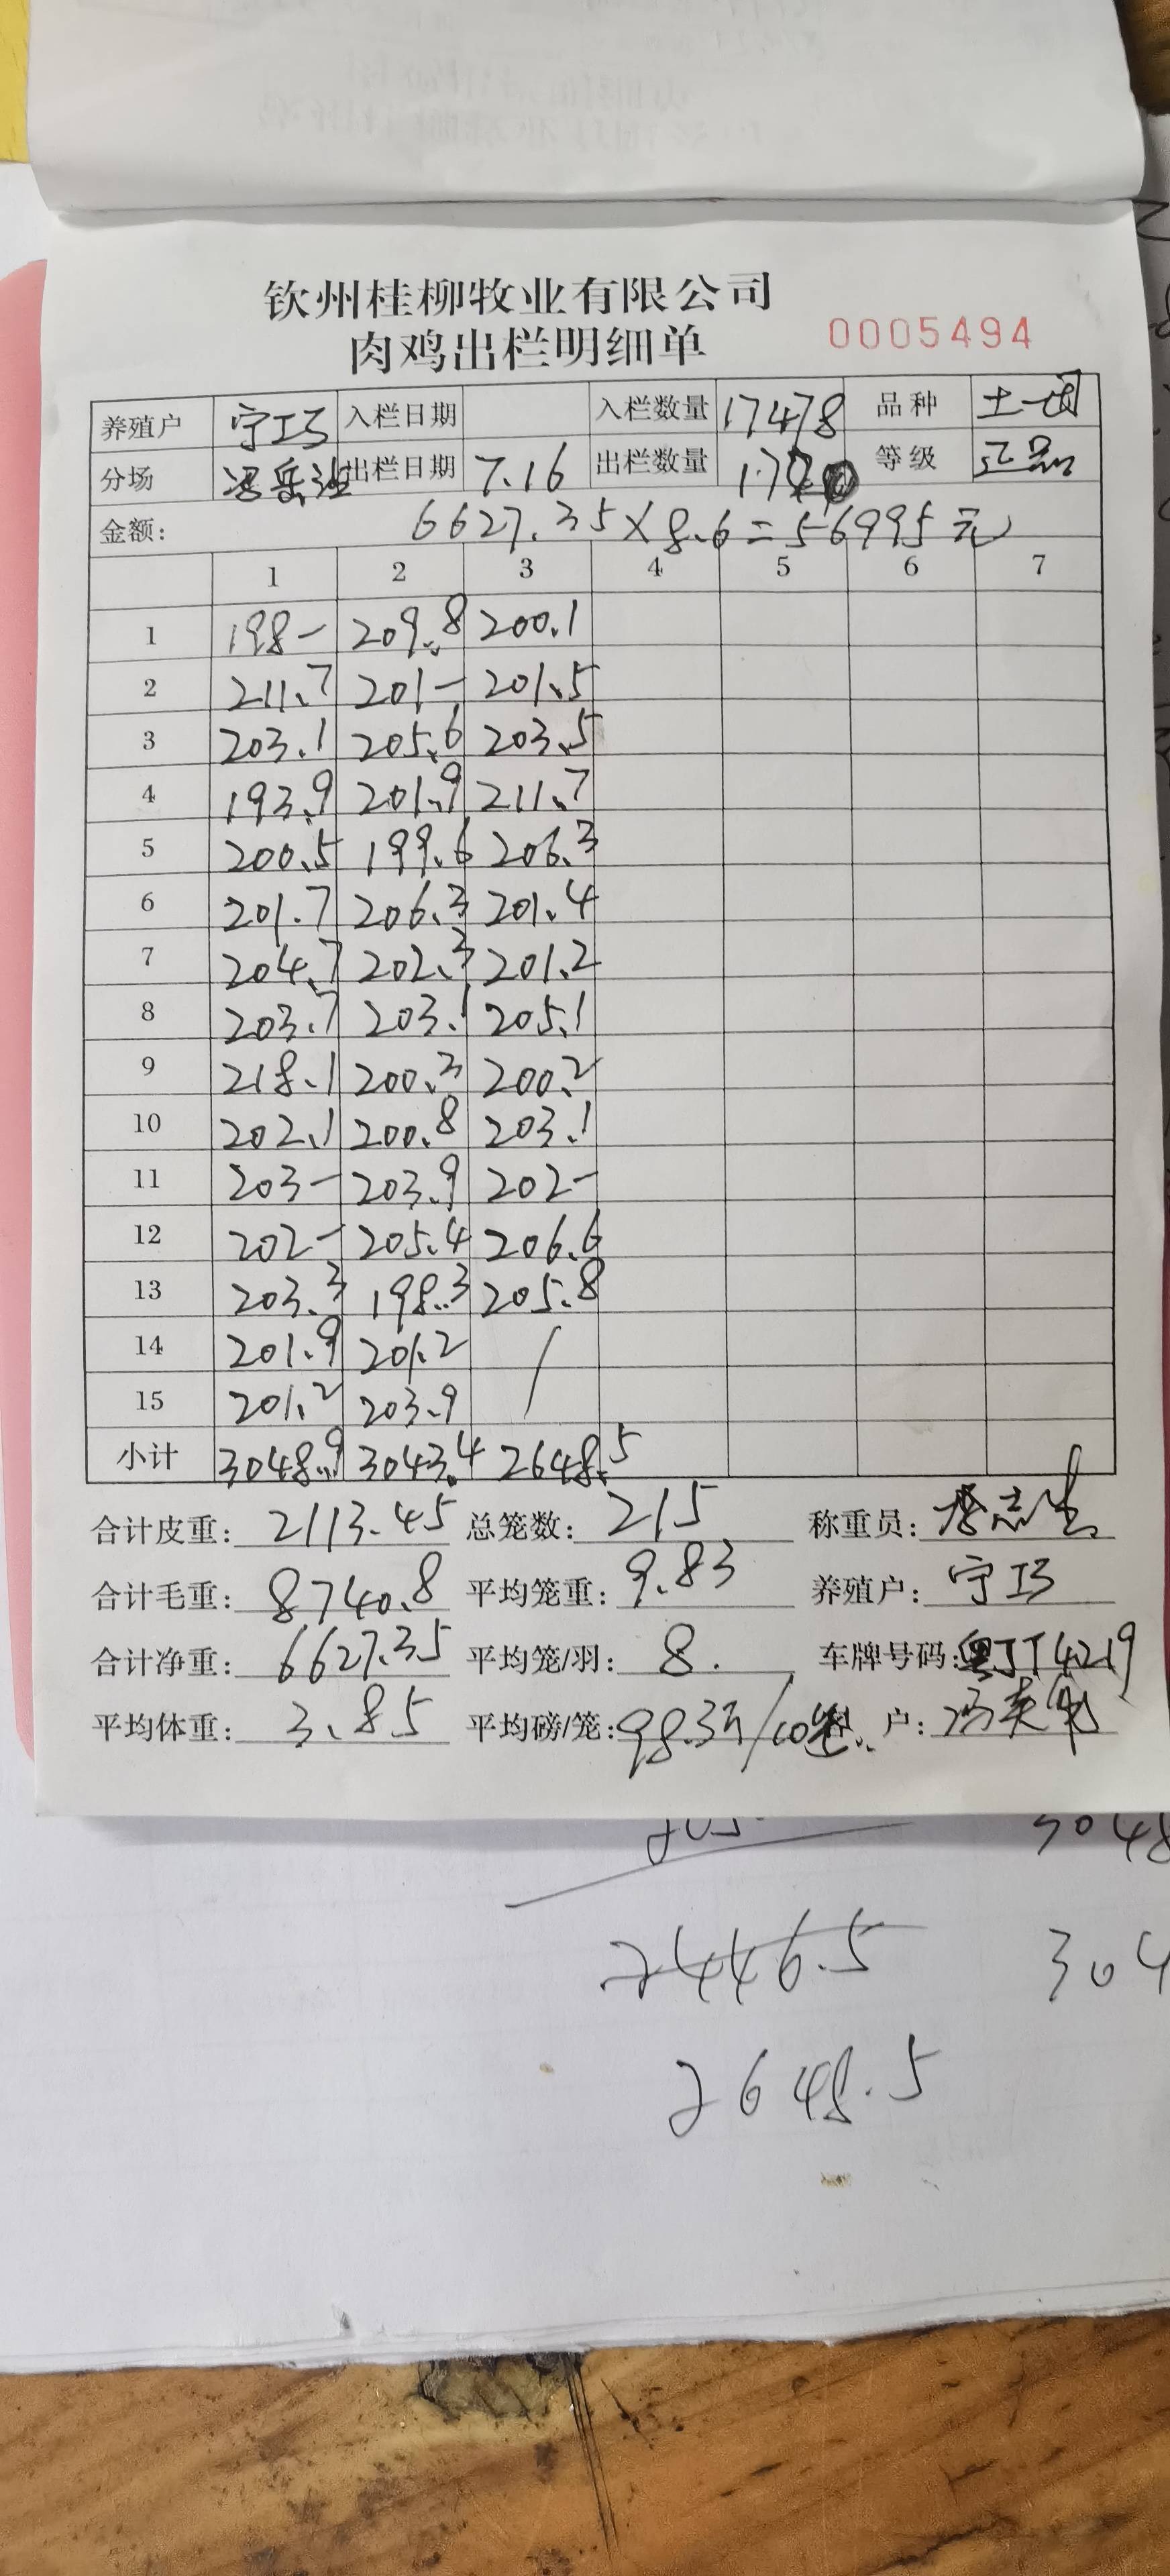 钦州桂柳牧业有限公司
肉鸡出栏明细单 0005494
养殖户 宁巧 入栏日期 入栏数量 17478 品种
分场 出栏日期 7.16 出栏数量 等级 正品
金额: 6627.35×8.6=56995元
1 2 3 4 5 6 7
1 198- 209.8 200.1
2 211.7 201- 201.5
3 203.1 205.6 203.5
4 193.9 201.9 211.7
5 200.5 199.6 206.3
6 201.7 206.3 201.4
7 204.7 202.3 201.2
8 203.7 203.1 205.1
9 218.1 200.3 200.2
10 202.1 200.8 203.1
11 203- 203.9 202-
12 202- 205.4 206.6
13 203.3 198.3 205.8
14 201.9 201.2 /
15 201.2 203.9
小计 3048.9 3043.4 2648.5
合计皮重: 2113.45 总笼数: 215 称重员:
合计毛重: 8740.8 平均笼重: 9.83 养殖户: 宁巧
合计净重: 6627.35 平均笼/羽: 8. 车牌号码: 粤JT4219
平均体重: 3.85 平均磅/笼: 98.3斤/10笼 户:
3048
2446.5 304
2648.5